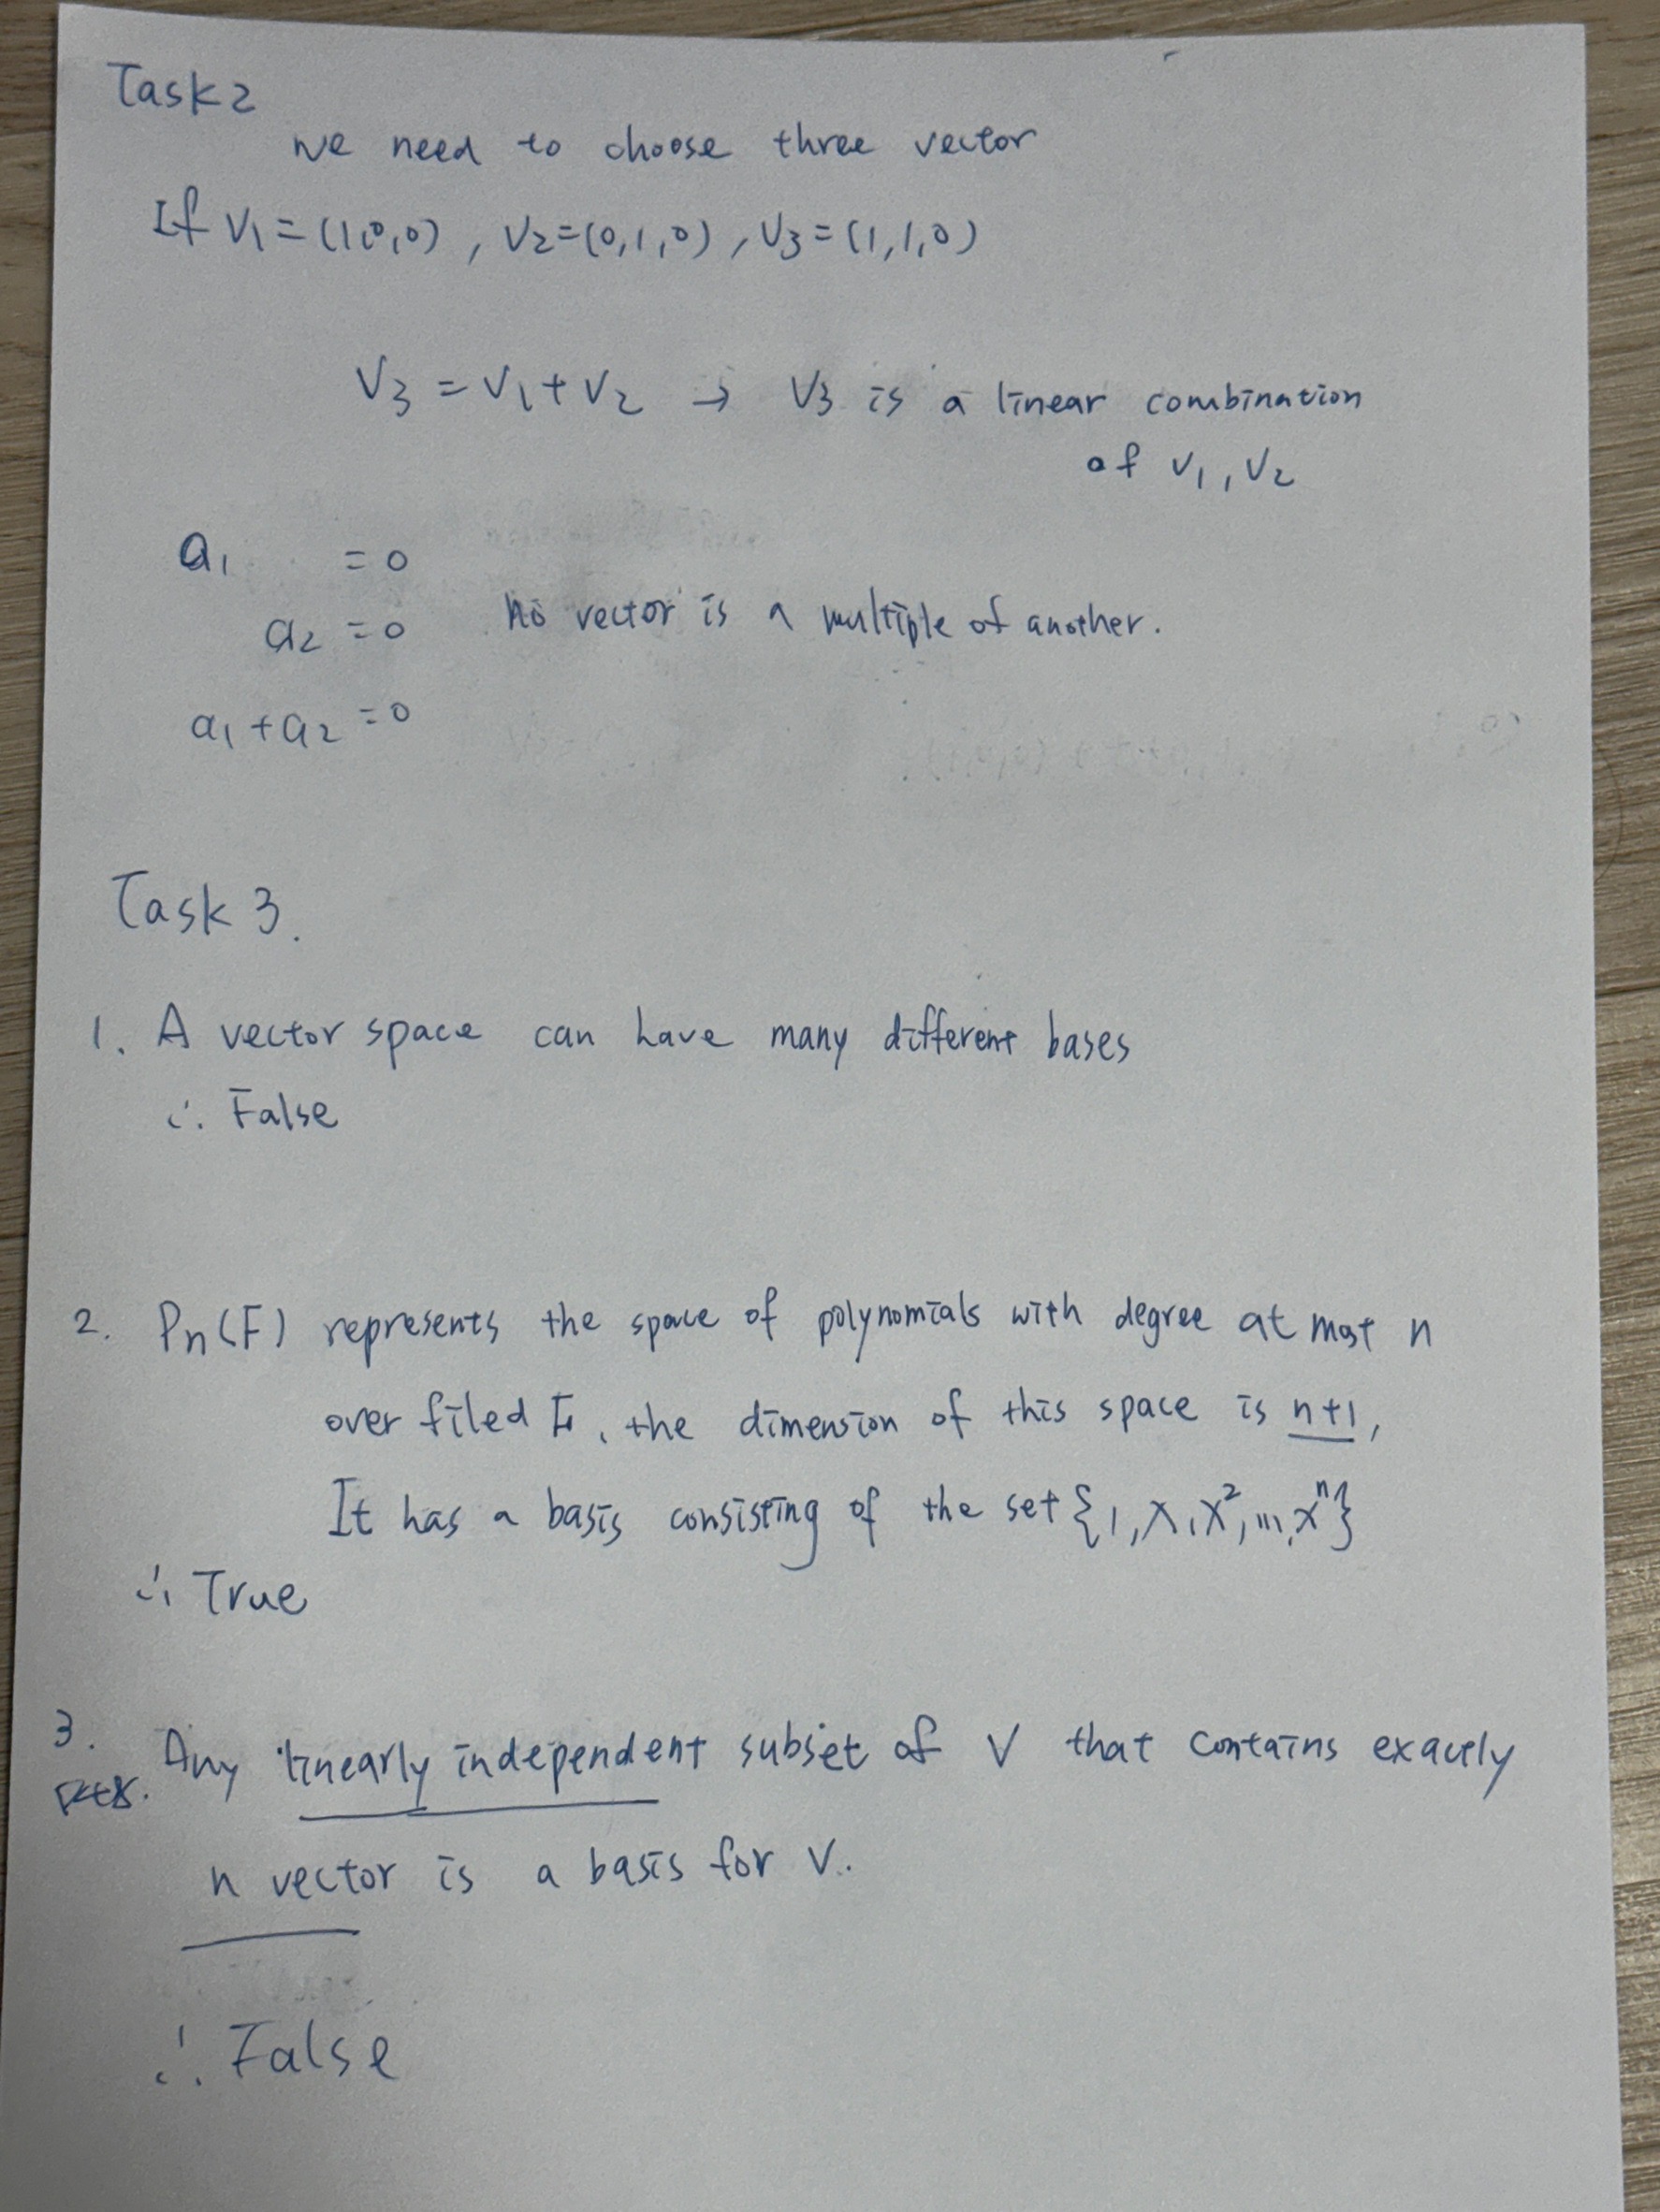 Task 2
we need to choose three vector
If V₁ = (1,0,0), V₂=(0,1,0), V₃=(1,1,0)
V₃ = V₁+V₂ → V₃ is a linear combination
of V₁, V₂
a₁ = 0
a₂ = 0 No vector is a multiple of another.
a₁ + a₂ = 0
Task 3.
1. A vector space can have many different bases
∴ False
2. Pn(F) represents the space of polynomials with degree at most n
over filed F, the dimension of this space is n+1,
It has a basis consisting of the set {1, x, x², ..., xⁿ}
∴ True
3. Any linearly independent subset of V that contains exactly
n vector is a basis for V.
∴ False